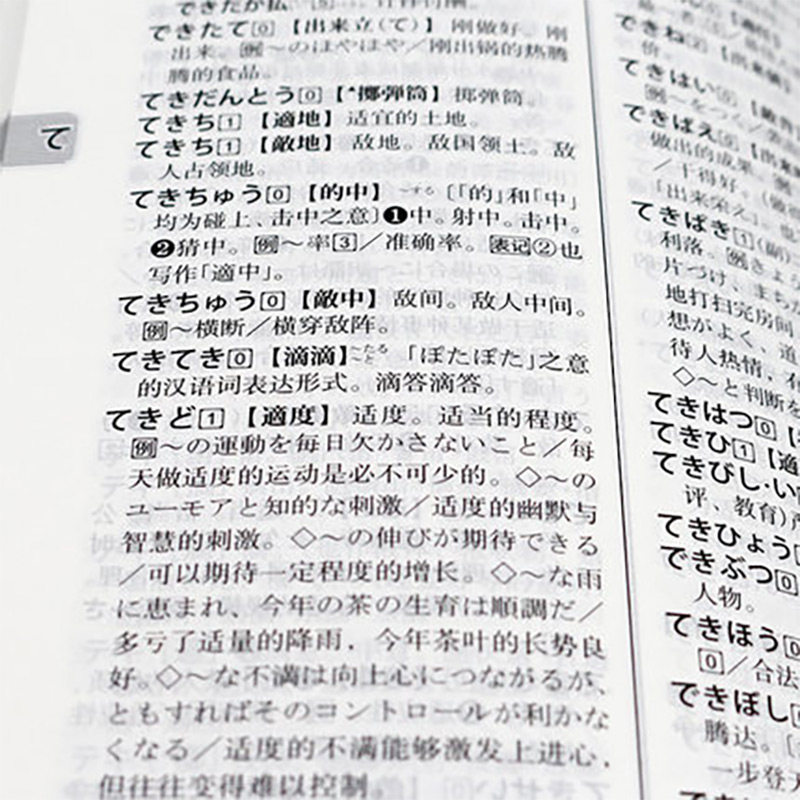 て
できたて[0]【出来立(て)】刚做好。刚
出来。[例]〜のほやほや／刚出锅的热腾
腾的食品。
てきだんとう[0]【*擲弾筒】掷弹筒。
てきち[1]【適地】适宜的土地。
てきち[1]【敵地】敌地。敌国领土。敌
人占领地。
てきちゅう[0]【的中】―する〔「的」和「中」
均为碰上、击中之意〕❶中。射中。击中。
❷猜中。[例]〜率[3]／准确率。[表记]②也
写作「適中」。
てきちゅう[0]【敵中】敌间。敌人中间。
[例]〜横断／横穿敌阵。
てきてき[0]【滴滴】「ぽたぽた」之意
的汉语词表达形式。滴答滴答。
てきど[1]【適度】适度。适当的程度。
[例]〜の運動を毎日欠かさないこと／每
天做适度的运动是必不可少的。◇〜の
ユーモアと知的な刺激／适度的幽默与
智慧的刺激。◇〜の伸びが期待できる
／可以期待一定程度的增长。◇〜な雨
に恵まれ、今年の茶の生育は順調だ／
多亏了适量的降雨，今年茶叶的长势良
好。◇〜な不満は向上心につながるが、
ともすればそのコントロールが利かな
くなる／适度的不满能够激发上进心，
但往往变得难以控制。
できね[2]
价。
てきはい[0]
できばえ[0]【出来
做出的成果。[例]
／干得好。
「出来栄え」。也
てきぱき[1](副)
利落。[例]きょう
片づけ、まちか
地打扫完房间
想がよく、道
待人热情，有
◇〜と判断を
てきはつ[0]【
てきひ[1]【適
てきびし・い
评、教育)严
てきひょう
できぶつ[0]
人物。
てきほう[0]
[0]／合法
できぼし
腾达。
一步登天